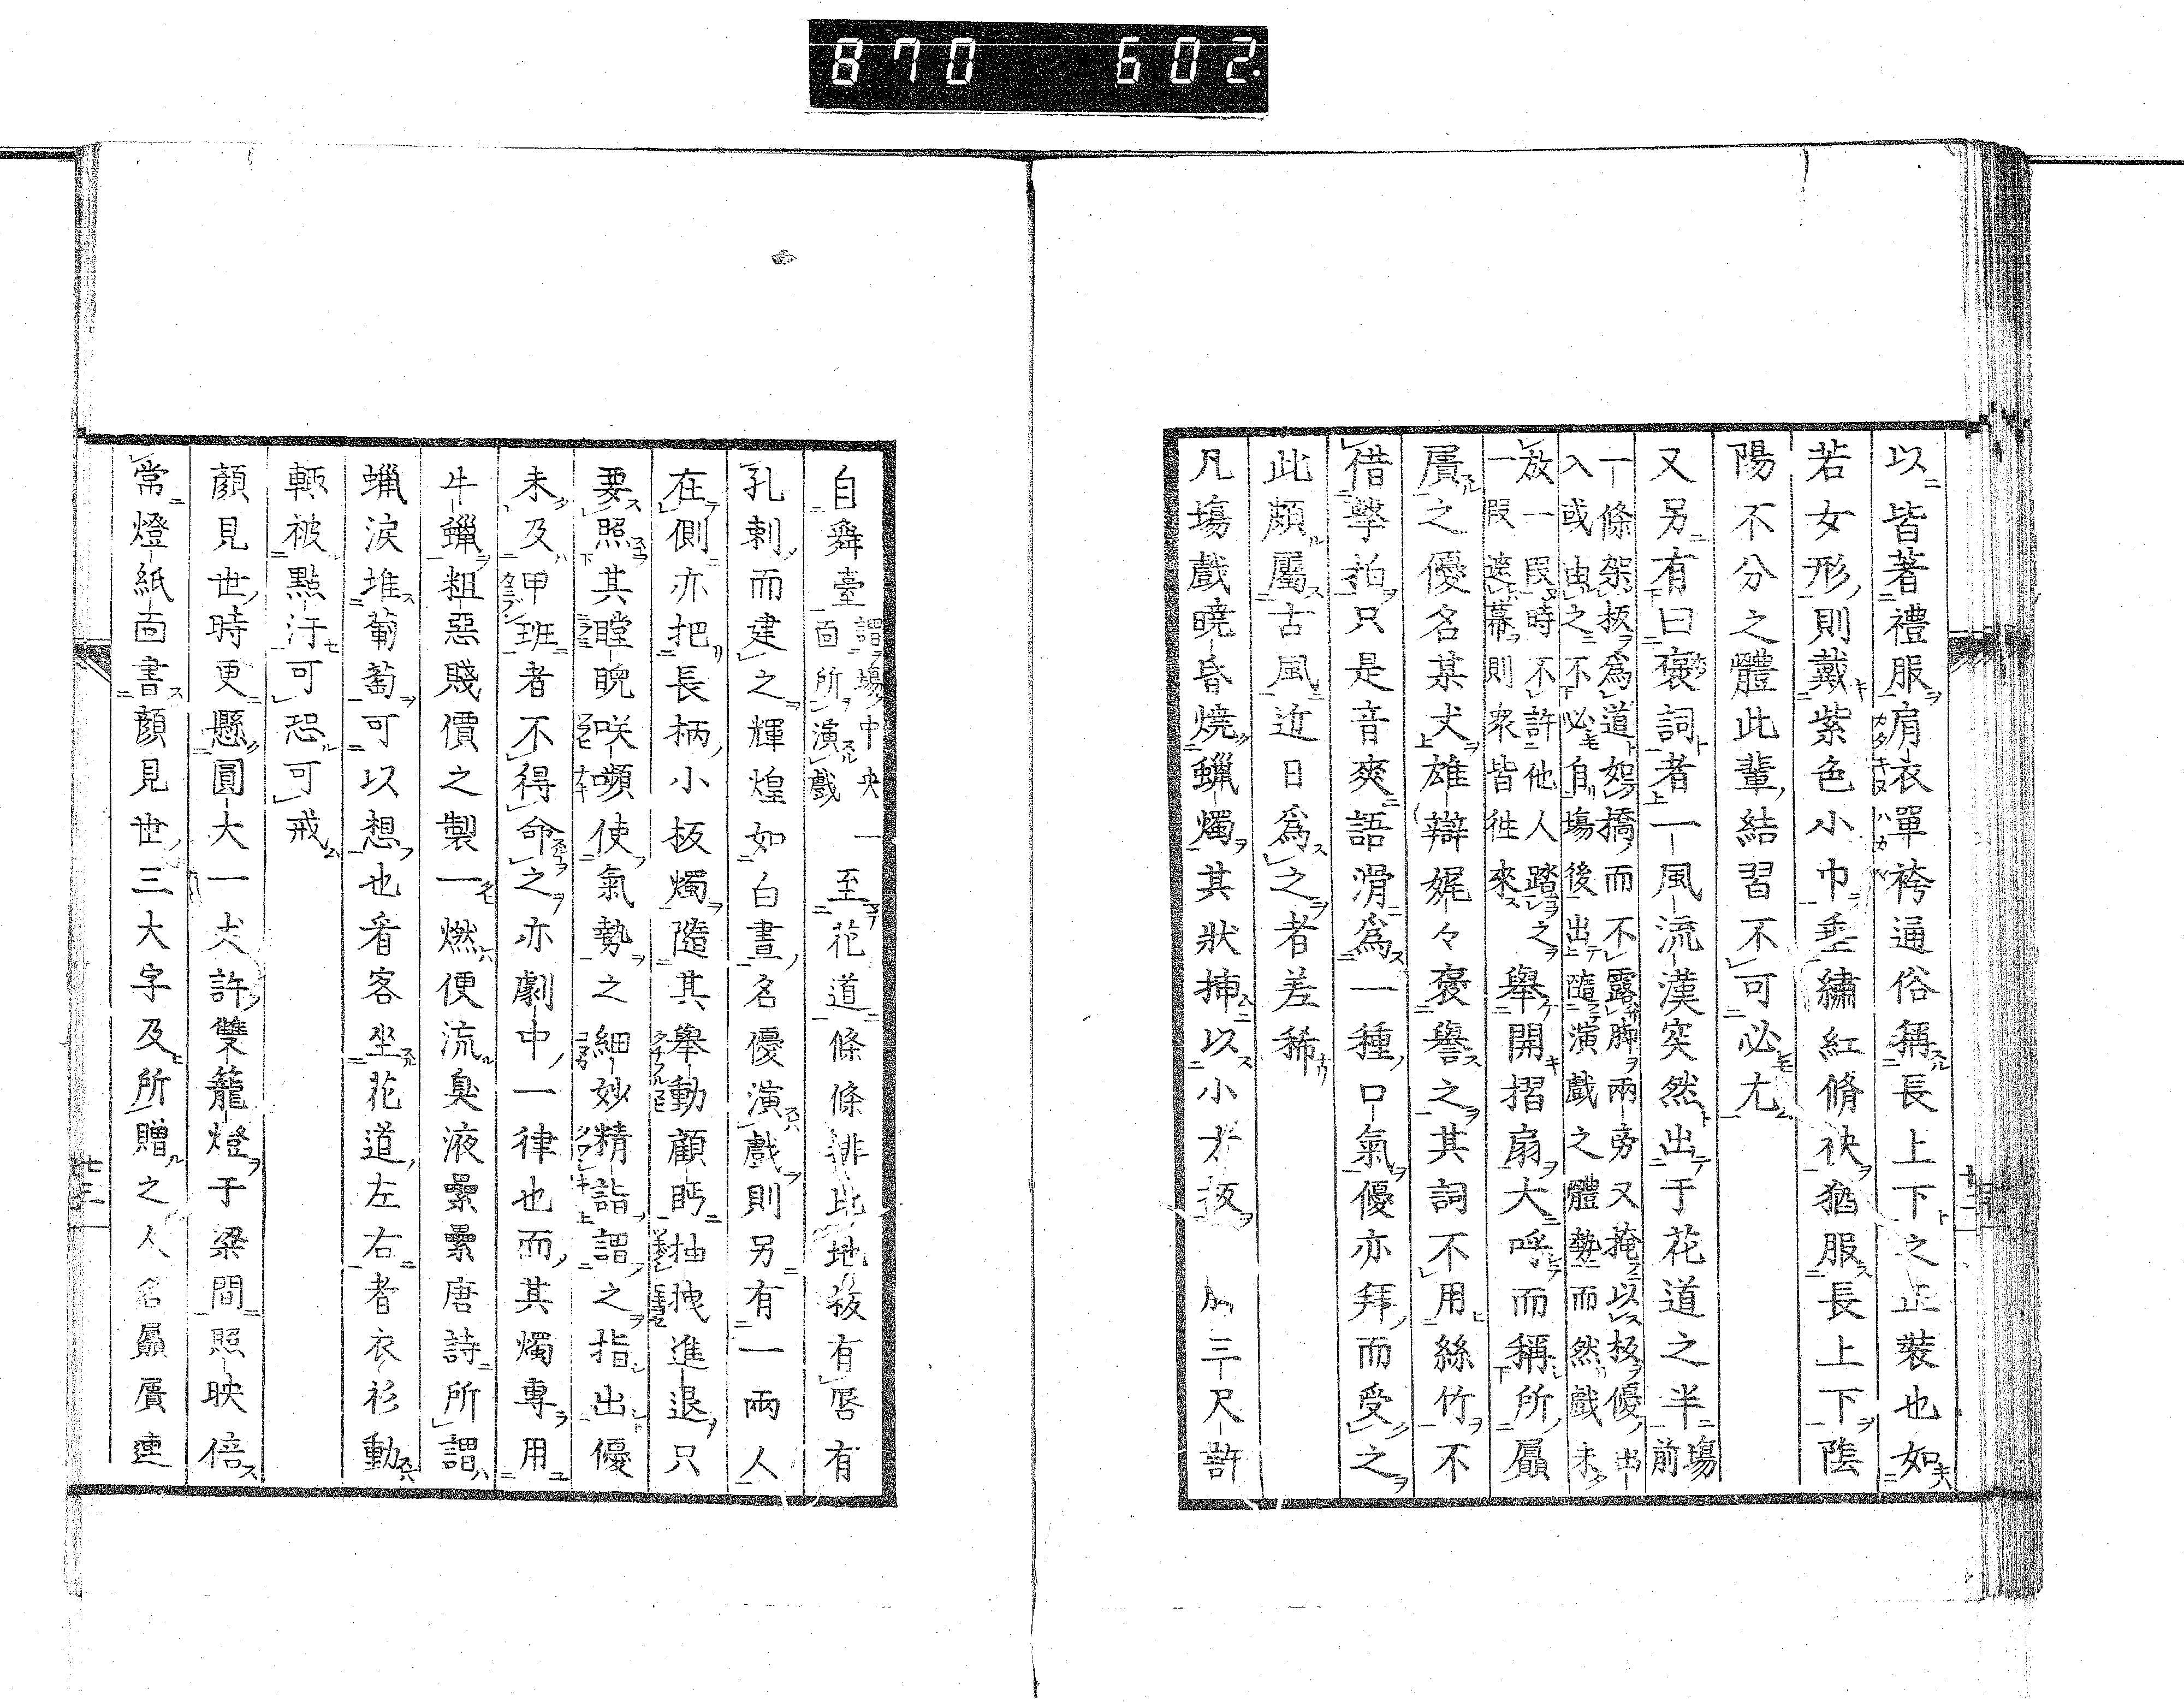 870 602.
以皆著禮服肩衣單袴通俗稱長上下之正裝也如
若女形則戴紫色小巾垂繡紅脩袂猶服長上下陰
陽不分之體此輩結習不可必尤
又另有曰褒詞者一風流漢突然出于花道之半場前
一條架板為道如橋而不露脚兩旁又掩以板優出
入或由之不必自場後出隨演戲之體勢而然戲未
放一段時不許他人踏之
一段遮幕則衆皆徃來
舉開摺扇大呼而稱所屭
屓之優名某犬雄辯娓々褒譽之其詞不用絲竹不
借擊拍只是音爽語滑爲一種口氣優亦拜而受之
此頗屬古風近日爲之者差稀
凡塲戲曉昏燒蠟燭其狀揷以小木板 三尺許
十二
自舞臺謂場中央一面所演戲至花道條條排比地板有唇有
孔剌而建之輝煌如白晝名優演戲則另有一兩人
在側亦把長柄小板燭隨其舉動顧眄抽拽進退只
要照其瞠睨咲嚬使氣勢之細妙精詣謂之指出優
未及甲班者不得命之亦劇中一律也而其燭專用
牛蠟粗惡賤價之製一燃便流臭液纍纍唐詩所謂
蠟淚堆葡萄可以想也看客坐花道左右者衣衫動
輙被點汙可恐可戒
顔見世時更懸圓大一丈許雙籠燈于梁間照映倍
常燈紙面書顔見世三大字及所贈之人名屭屓連
十三